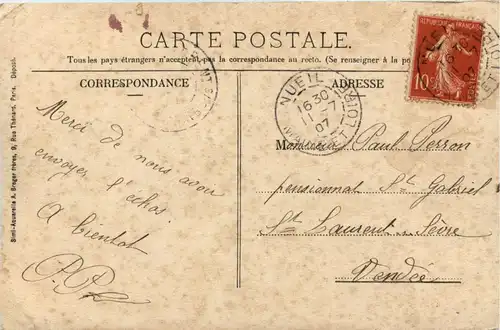 CARTE POSTALE.
Tous les pays étrangers n'acceptent pas la correspondance au recto. (Se renseigner à la
CORRESPONDANCE
ADRESSE
RÉPUBLIQUE FRANÇAISE
10
NUEIL
16 30
11 - 7
07
Merci de nous avoir
envoyer l'échos.
A bientôt
P.P.
Monsieur Paul Perron
pensionnat St Gabriel
St Laurent s. Sèvre
Vendée
Simili-Aquarelle A. Breger frères, 9, Rue Thénard, Paris. Déposé.